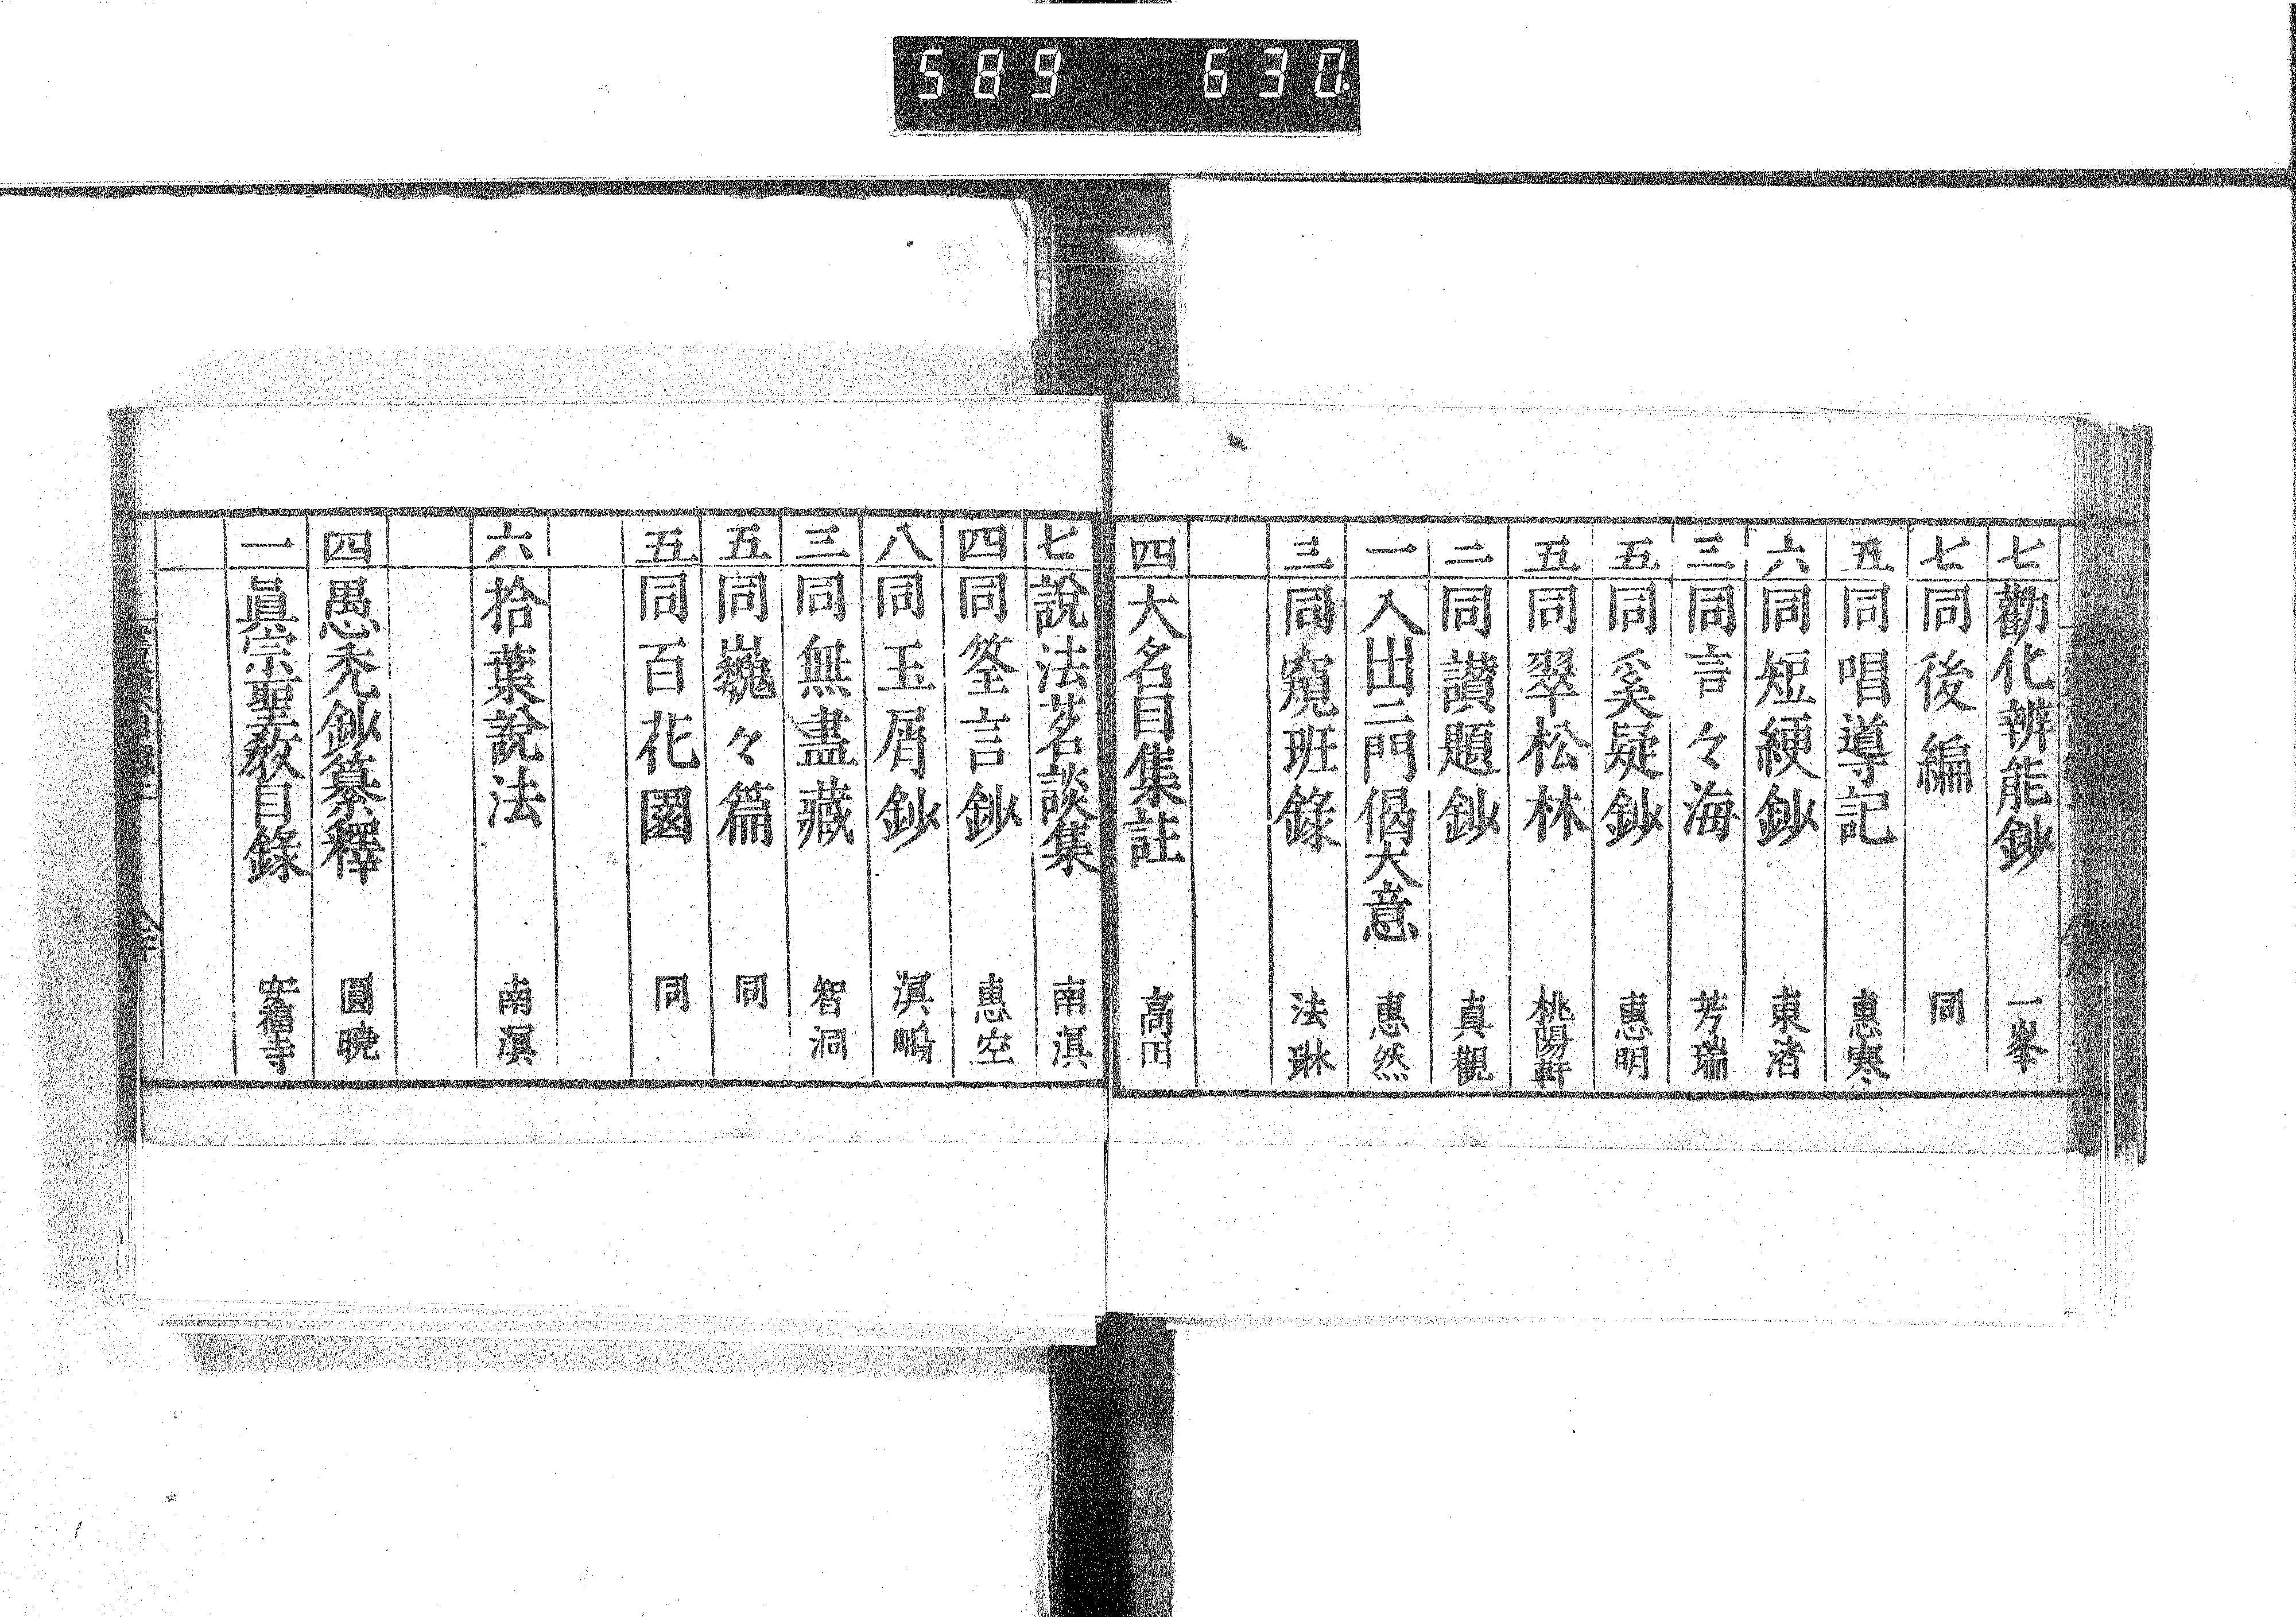 589 630
七 勸化辨能鈔 一峯
七 同後編 同
五 同唱導記 惠寒
六 同短綆鈔 東渚
三 同言々海 芳瑞
五 同奚疑鈔 惠明
五 同翠松林 桃陽軒
二 同讃題鈔 真觀
一 入出二門偈大意 惠然
三 同窺班錄 法琳
四 大名目集註 高田
七 說法茗談集 南溟
四 同筌言鈔 惠空
八 同玉屑鈔 溟鵬
三 同無盡藏 智洞
五 同巍々篇 同
五 同百花園 同
六 拾葉說法 南溟
四 愚禿鈔纂釋 圓曉
一 眞宗聖教目錄 安福寺